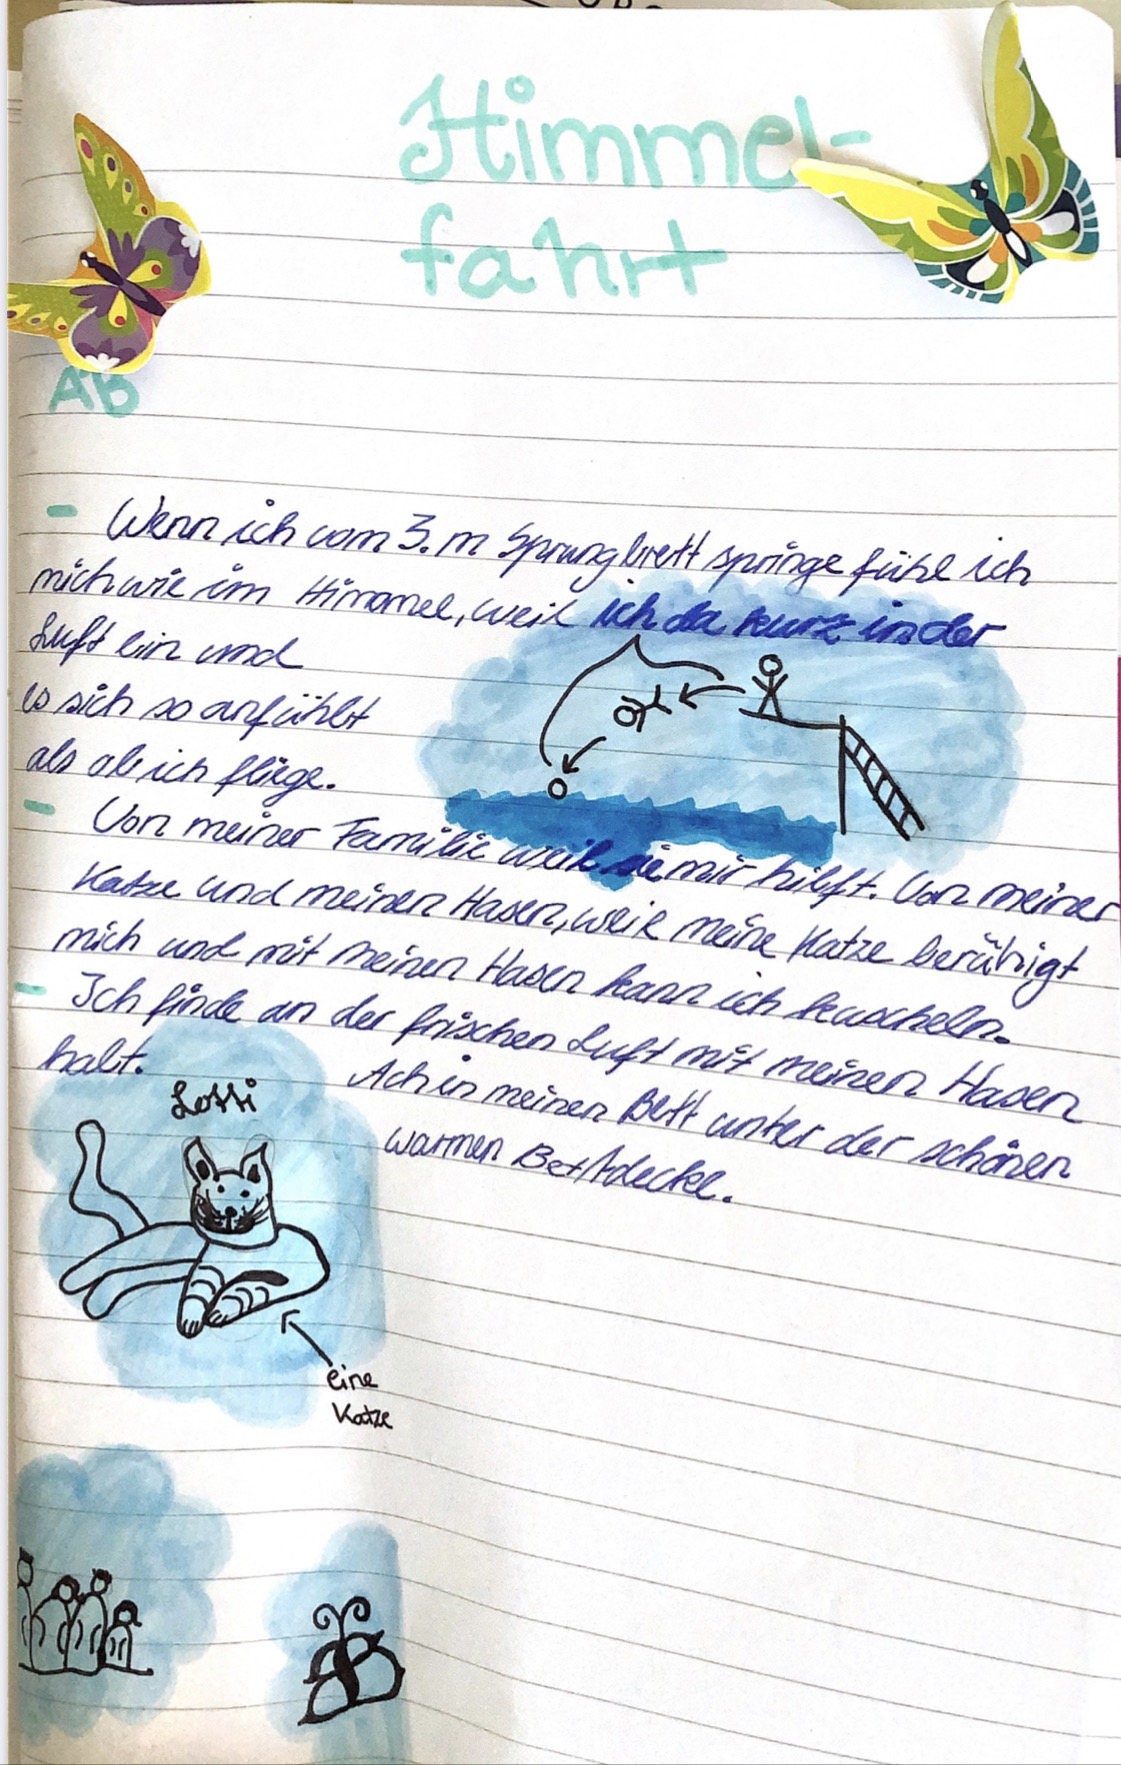 Himmel-
fahrt
AB
- Wenn ich vom 3.m Sprungbrett springe fühl ich
mich wie im Himmel, weil ich da kurz in der
Luft bin und
es sich so anfühlt
als ob ich fliege.
- Von meiner Familie weil sie mir hilft. Von meiner
Katze und meinen Hasen, weil meine Katze berühigt
mich und mit meinen Hasen kann ich kuscheln.
- Ich finde an der frischen Luft mit meinen Hasen
halt. Ach in meinen Bett unter der schönen
warmen Bettdecke.
Lotti
eine
Katze